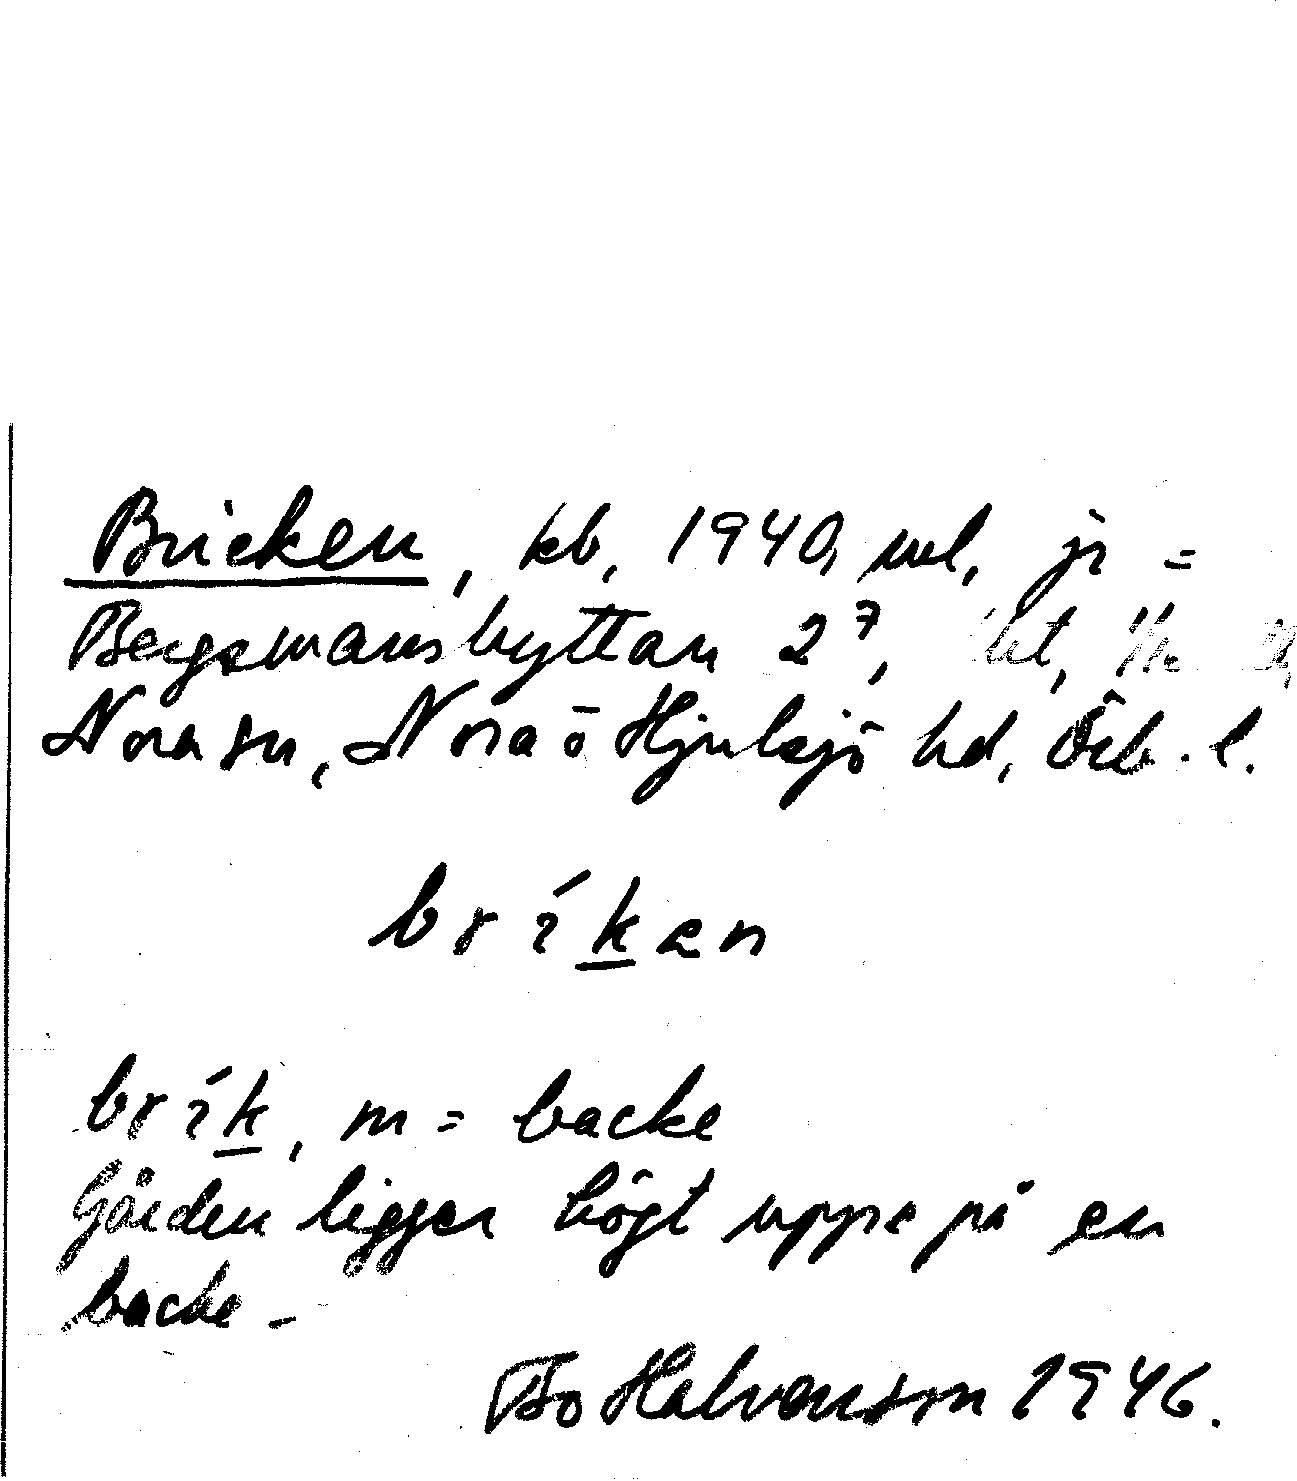 Bricken, kb, 1940, ml, jr =
Bergsmanshyttan 2⁷,
Nora sn, Nora ö Hjulsjö hd, Örb. l.
bríkan
brík, m = backe
Gården ligger högt uppe på en
backe –
Bo Halvarsson 1946.